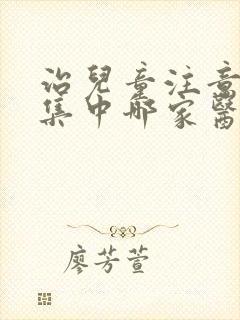 治兒童注意
集中哪家醫
廖芳萱